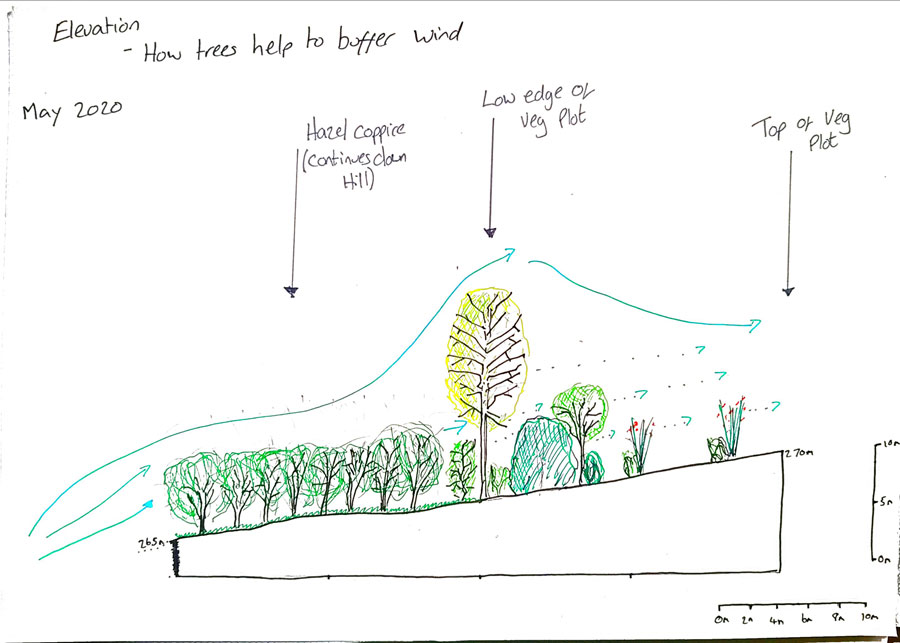 Elevation
- How trees help to buffer wind
May 2020
Hazel Coppice
(continues down
Hill)
Low edge of
Veg Plot
Top of Veg
Plot
265m
270m
10m
5m
0m
0m 2m 4m 6m 8m 10m